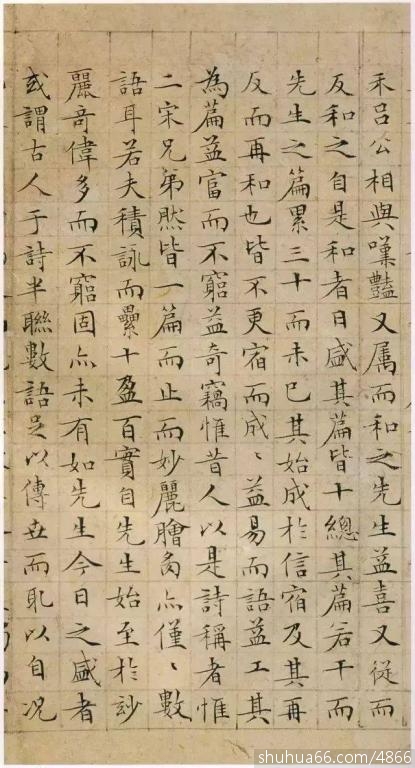 禾吕公相與嘆豔又属而和之先生益喜又從而
反和之自是和者日盛其篇皆十總其篇若干而
先生之篇累三十而未已其始成於信宿及其再
反而再和也皆不更宿而成〻益易而語益工其
為篇益富而不窮益奇竊惟昔人以是詩稱者惟
二宋兄弟然皆一篇而止而妙麗膾炙亦僅〻數
語耳若夫積詠而纍十盈百實自先生始至於玅
麗奇偉多而不窮固亦未有如先生今日之盛者
或謂古人于詩半聯數語足以傳世而耴以自况
shuhua66.com/4866